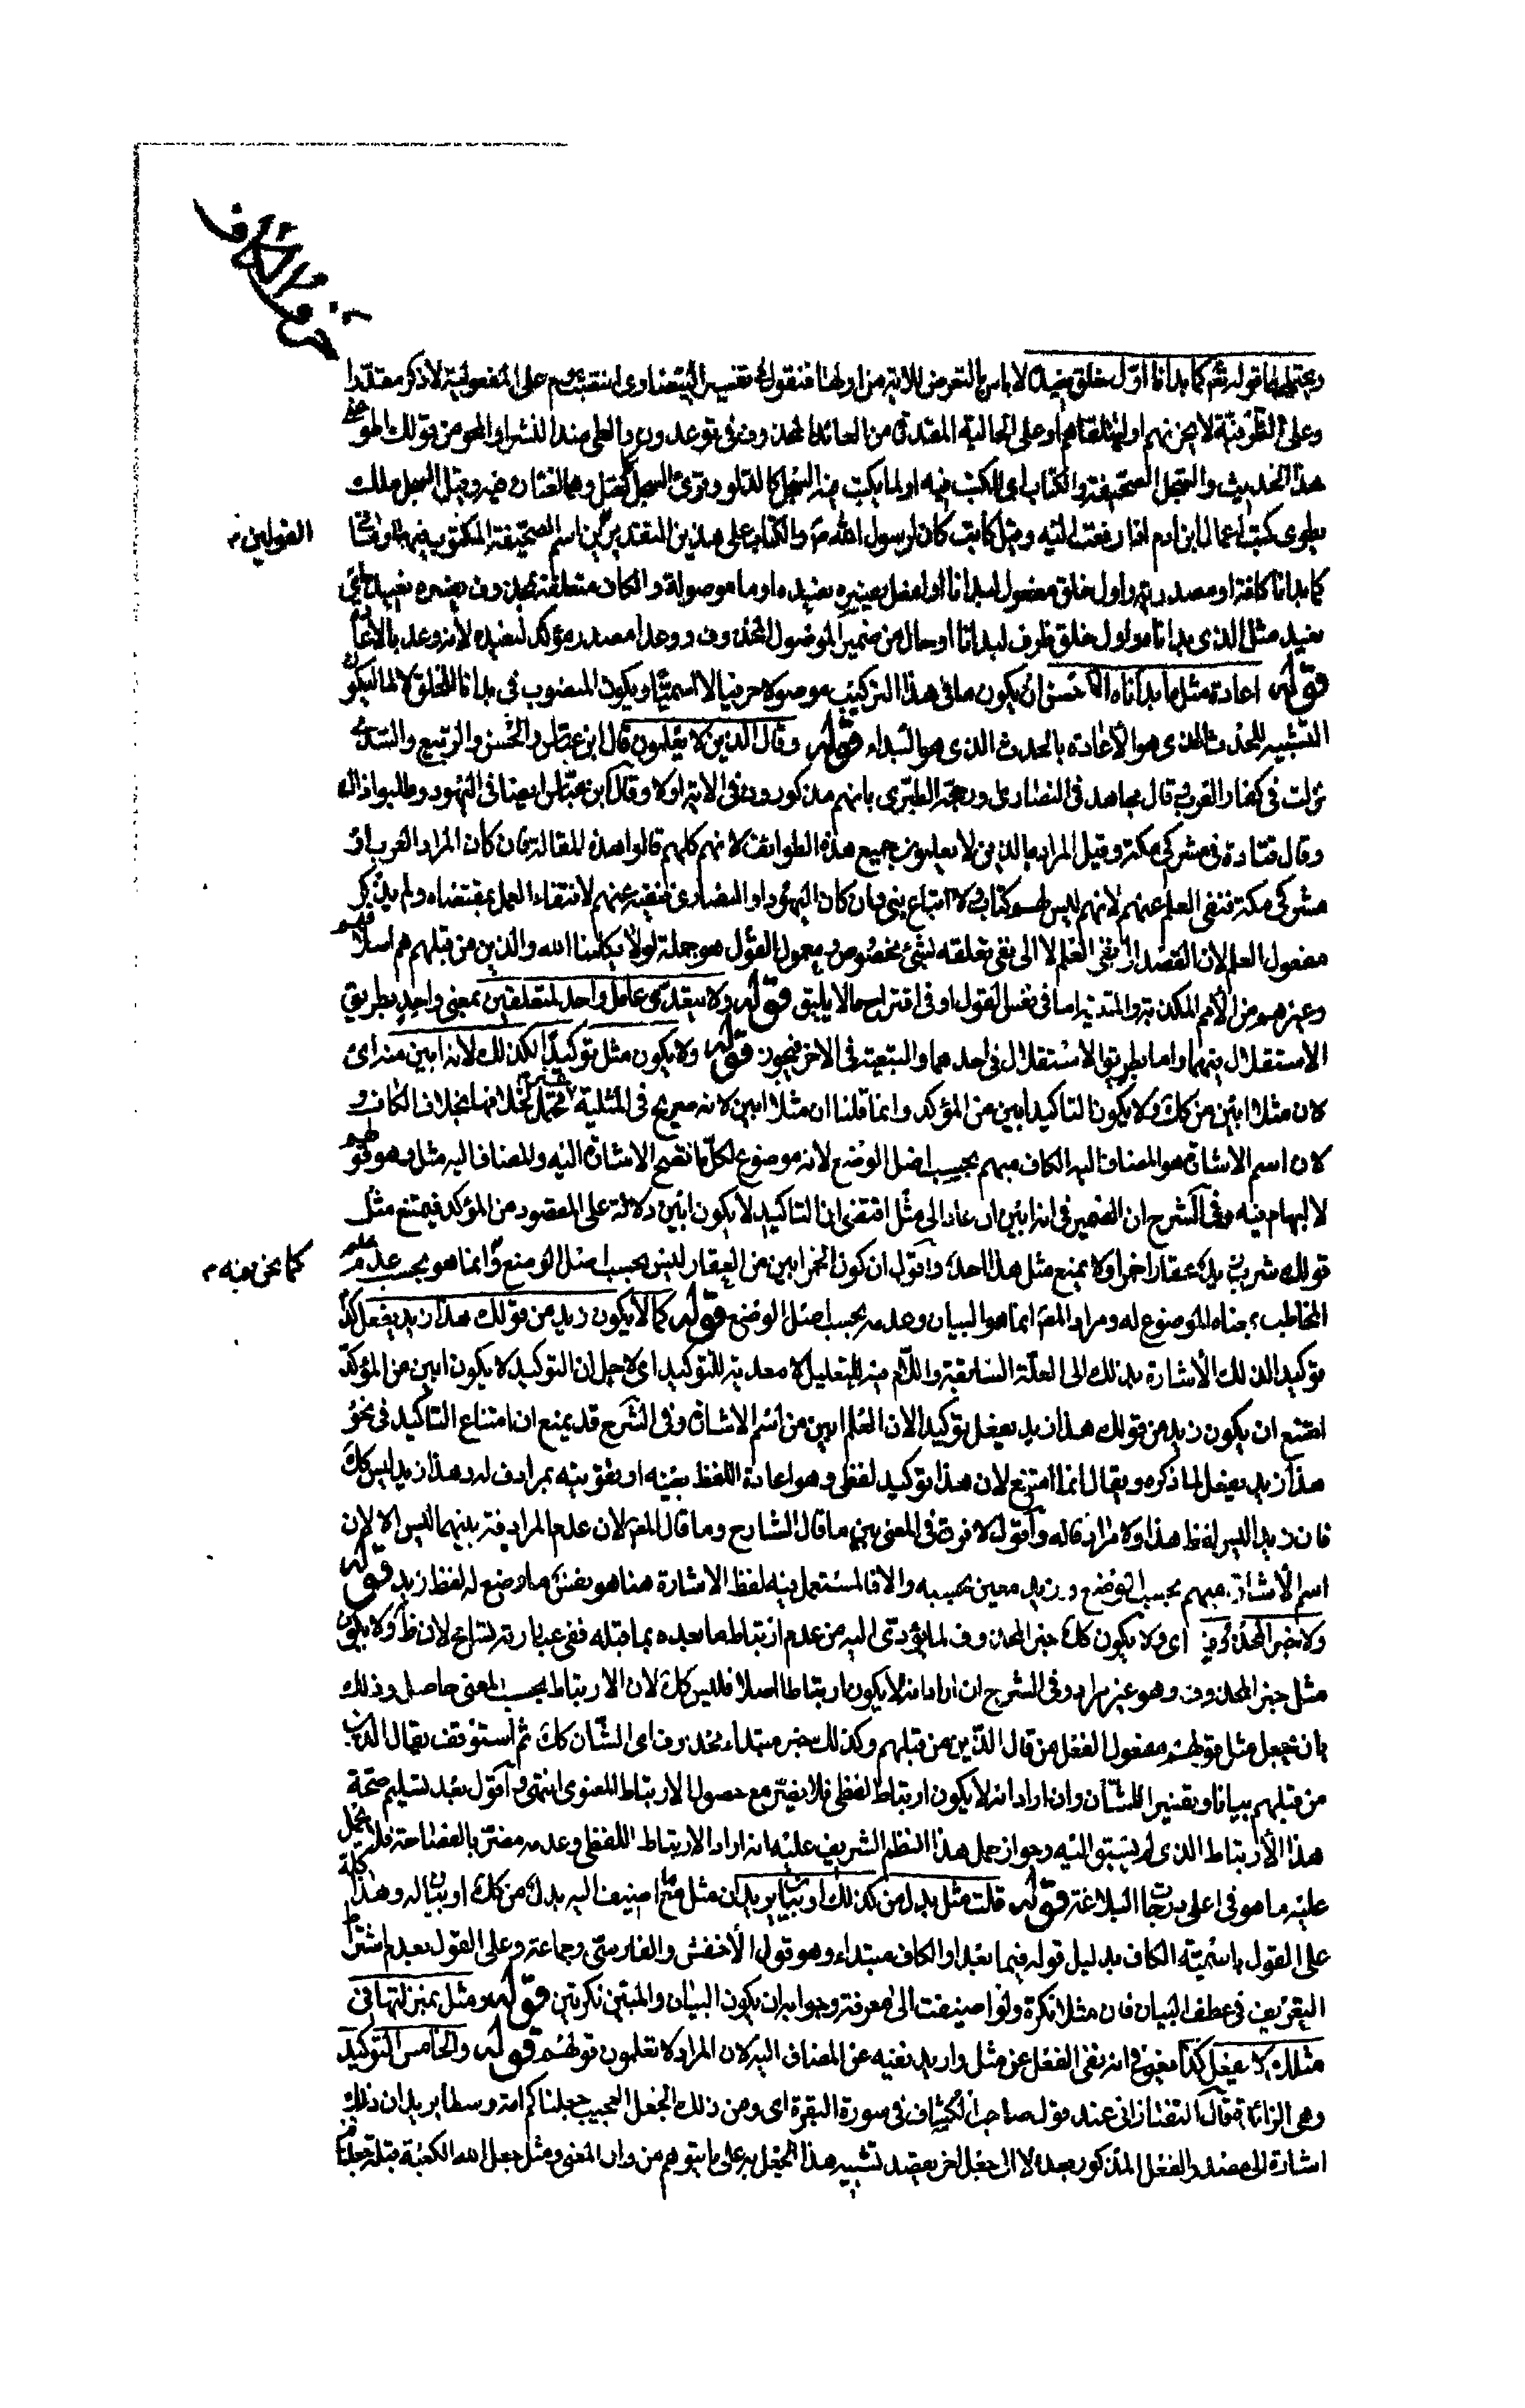 حرف الكاف
ويحتملهما قوله تع كما بدانا اول خلق نعيده لا باس بالتعرض للاية من اولها فنقول في تفسير البيضاوى انتصب يوم على المفعولية لاذكر مقدرا
وعلى الظرفية لا يحزنهم او تتلقاهم او على الحالية المقدرة من العائد المحذوف فى توعدون والطى ضد النشر او المحو من قولك اطو عنى
هذا الحديث والسجل الصحيفة والكتاب اى للكتب فيه او لما يكتب فيه السجل كالدلو وقرئ السجل كعتل وهما لغتان فيه وقيل السجل ملك
يطوى كتب اعمال ابن ادم اذا رفعت اليه وقيل كاتب كان لرسول الله ص والكتاب على هذين التقديرين اسم الصحيفة المكتوب فيها وما فى
القولين
كما بدانا كافة او مصدرية واول خلق مفعول لبدانا او لفعل يفسره نعيده او ما موصولة والكاف متعلقة بمحذوف يفسره نعيده اى
نعيد مثل الذى بدانا واول خلق ظرف لبدانا او حال من ضمير الموصول المحذوف ووعدا مصدر مؤكد لنعيده لانه وعد بالاعادة
قوله اعادة مثل ما بدأناه الاحسن ان يكون ما فى هذا التركيب موصولا حرفيا لا اسميا ويكون المنصوب فى بدانا للخلق لا لما ليكون
التشبيه للحدث الذى هو الاعادة بالحدث الذى هو البداء قوله وقال الذين لا يعلمون قال ابن عباس والحسن والربيع والسدى
نزلت فى كفار العرب قال مجاهد فى النصارى ورجحه الطبرى بانهم مذكورون فى الاية اولا وقال ابن عباس ايضا فى اليهود وطلبوا ذلك
وقال قتادة فى مشركى مكة وقيل المراد بالذين لا يعلمون جميع هذه الطوائف لانهم كلهم قالوا هذه المقالة فان كان المراد العرب او
مشركى مكة فنفى العلم عنهم لانهم ليس لهم كتاب ولا اتباع نبى وان كان اليهود او النصارى فنفيه عنهم لانتفاء العمل بمقتضاه ولم يذكر
مفعول العلم لان القصد الى نفى العلم لا الى نفى تعلقه بشئ مخصوص ومعمول القول هو جملة لولا يكلمنا الله والذين من قبلهم هم اسلافهم
وغيرهم من الامم المكذبة والمثلية اما فى نفس القول او فى اقتراح ما لا يليق قوله ولا يتعدى عامل واحد لمتعلقين بمعنى واحد بطريق
الاستقلال فيهما واما بطريق الاستقلال فى احدهما والتبعية فى الاخر فيجوز قوله ولا يكون مثل توكيدا لكذلك لانه ابين منه اى
لان مثلا ابين من كك ولا يكون التاكيد ابين من المؤكد وانما قلنا ان مثلا ابين لانه صريح فى المثلية لا يحتمل خلافها بخلاف الكاف و
لان اسم الاشارة هو المضاف اليه الكاف مبهم بحسب اصل الوضع لانه موضوع لكل ما تصح الاشارة اليه والمضاف اليه مثل وهو قولهم
لا ابهام فيه وفى الشرح ان الضمير فى انه ابين ان عاد الى مثل اقتضى ان التاكيد لا يكون ابين دلالة على المقصود من المؤكد فيمتنع مثل
قولك شربت عقارا خمرا ولا يمنع مثل هذا احد واقول ان كون الخمر ابين من العقار ليس بحسب اصل الوضع وانما هو بحسب عدم علم
كما نحن فيه
المخاطب بمعناه الموضوع له ومراد المص انما هو البيان وعدمه بحسب اصل الوضع قوله كما لا يكون زيد من قولك هذا زيد يفعل كذا
توكيدا لذلك الاشارة بذلك الى العلة السابقة واللام فيه للتعليل لا معدية للتوكيد اى لاجل ان التوكيد لا يكون ابين من المؤكد
امتنع ان يكون زيد من قولك هذا زيد يفعل توكيدا لان العلم ابين من اسم الاشارة وفى الشرح قد يمنع ان امتناع التاكيد فى نحو
هذا زيد يفعل لما ذكره ويقال انما امتنع لان هذا توكيد لفظى وهو اعادة اللفظ بعينه او تقويته بمرادف له وهذا زيد ليس كك
فان زيدا ليس لفظ هذا ولا مرادفا له واقول لا فرق فى المعنى بين ما قال الشارح وما قال المص لان عدم المرادفة بينهما ليس الا لان
اسم الاشارة مبهم بحسب الوضع وزيد معين بحسبه والا فالمستعمل فيه لفظ الاشارة هنا هو نفس ما وضع له لفظ زيد قوله
ولا خبرا لمحذوف اى ولا يكون كك خبر المحذوف لما يؤدى اليه من عدم ارتباط ما بعده بما قبله ففى عبارته تسامح لان ظ ولا يكون
مثل خبر المحذوف وهو غير مراد وفى الشرح ان اراد انه لا يكون ارتباطا اصلا فليس كك لان الارتباط بحسب المعنى حاصل وذلك
بان يجعل مثل قولهم مفعول الفعل من قال الذين من قبلهم وكذلك خبر مبتداء محذوف اى الشأن كك ثم استوقف بقال الذين
من قبلهم بيانا وتفسيرا للشأن وان اراد انه لا يكون ارتباط لفظى فلا يضر مع حصول الارتباط المعنوى انتهى واقول بعد تسليم صحة
هذا الارتباط الذى لم يسبق اليه وجواز حمل هذا النظم الشريف عليه انه اراد الارتباط اللفظى وعدمه مضر بالفصاحة فلا يحمل
عليه ما هو فى اعلى درجات البلاغة قوله قلت مثل بدل من كذلك او بيان يريد ان مثل مع ما اضيف اليه بدل من كك او بيان له وهذا كله
على القول باسمية الكاف بدليل قوله فيما بعد او الكاف مبتداء وهو قول الاخفش والفارسى وجماعة وعلى القول بعدم اشتراط
التعريف فى عطف البيان فان مثلا نكرة ولو اضيفت الى معرفة وجوابه ان يكون البيان والمبين نكرتين قوله ومثل بمنزلتها فى
مثلك لا يفعل كذا يعنى فى انه نفى الفعل عن مثل واريد نفيه عن المضاف اليه لان المراد لا تعلمون قولهم قوله والخامس التوكيد
وهى الزائدة قال التفتازانى عند قول صاحب الكشاف فى سورة البقرة اى ومن ذلك الجعل العجيب جعلناكم امة وسطا يريد ان ذلك
اشارة الى مصدر الفعل المذكور بعده لا الى جعل اخر يقصد تشبيه هذا الجعل به على ما يتوهم من وان المعنى ومثل جعل الله الكعبة قبلة جعلناكم